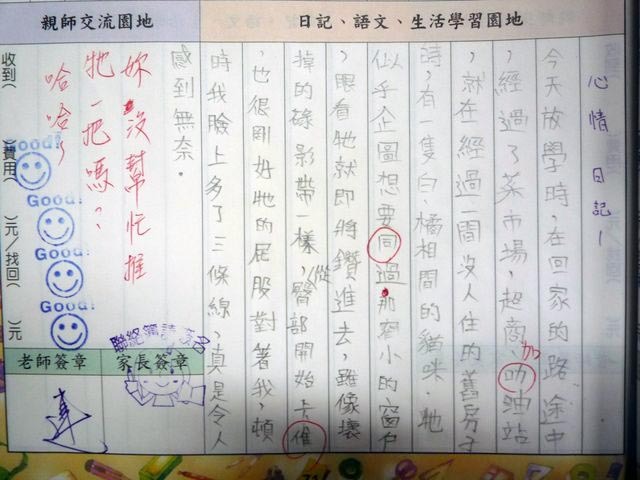 親師交流園地
日記、語文、生活學習園地
心情日記一
今天放學時,在回家的路途中
,經過了菜市場,超商、叻油站
加
,就在經過一間沒人住的舊房子
時,有一隻白、橘相間的貓咪.牠
似乎企圖想要同過那窄小的窗戶
,眼看牠就即將鑽進去,雖像壞
掉的碌影帶一樣,從臀部開始卡隹
,也很剛好牠的屁股對著我,頓
時我臉上多了三條線,真是令人
感到無奈.
妳沒幫忙推
牠一把嗎?
哈哈~
收到( )費用( )元/找回( )元
Good!
Good!
Good!
Good!
聯絡簿請簽名
老師簽章
家長簽章